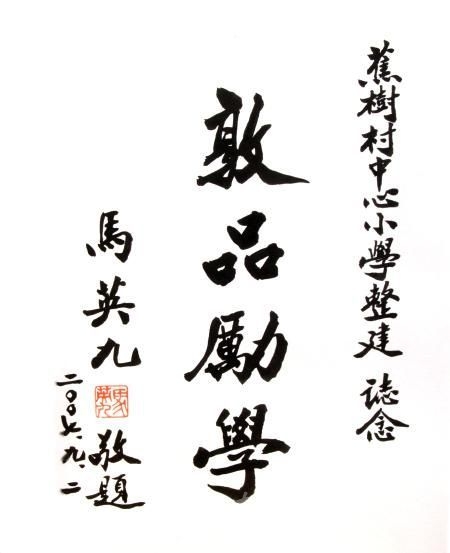 蕉樹村中心小學整建 誌念
敦品勵學
馬英九 敬題
馬英九
二〇〇 九.二